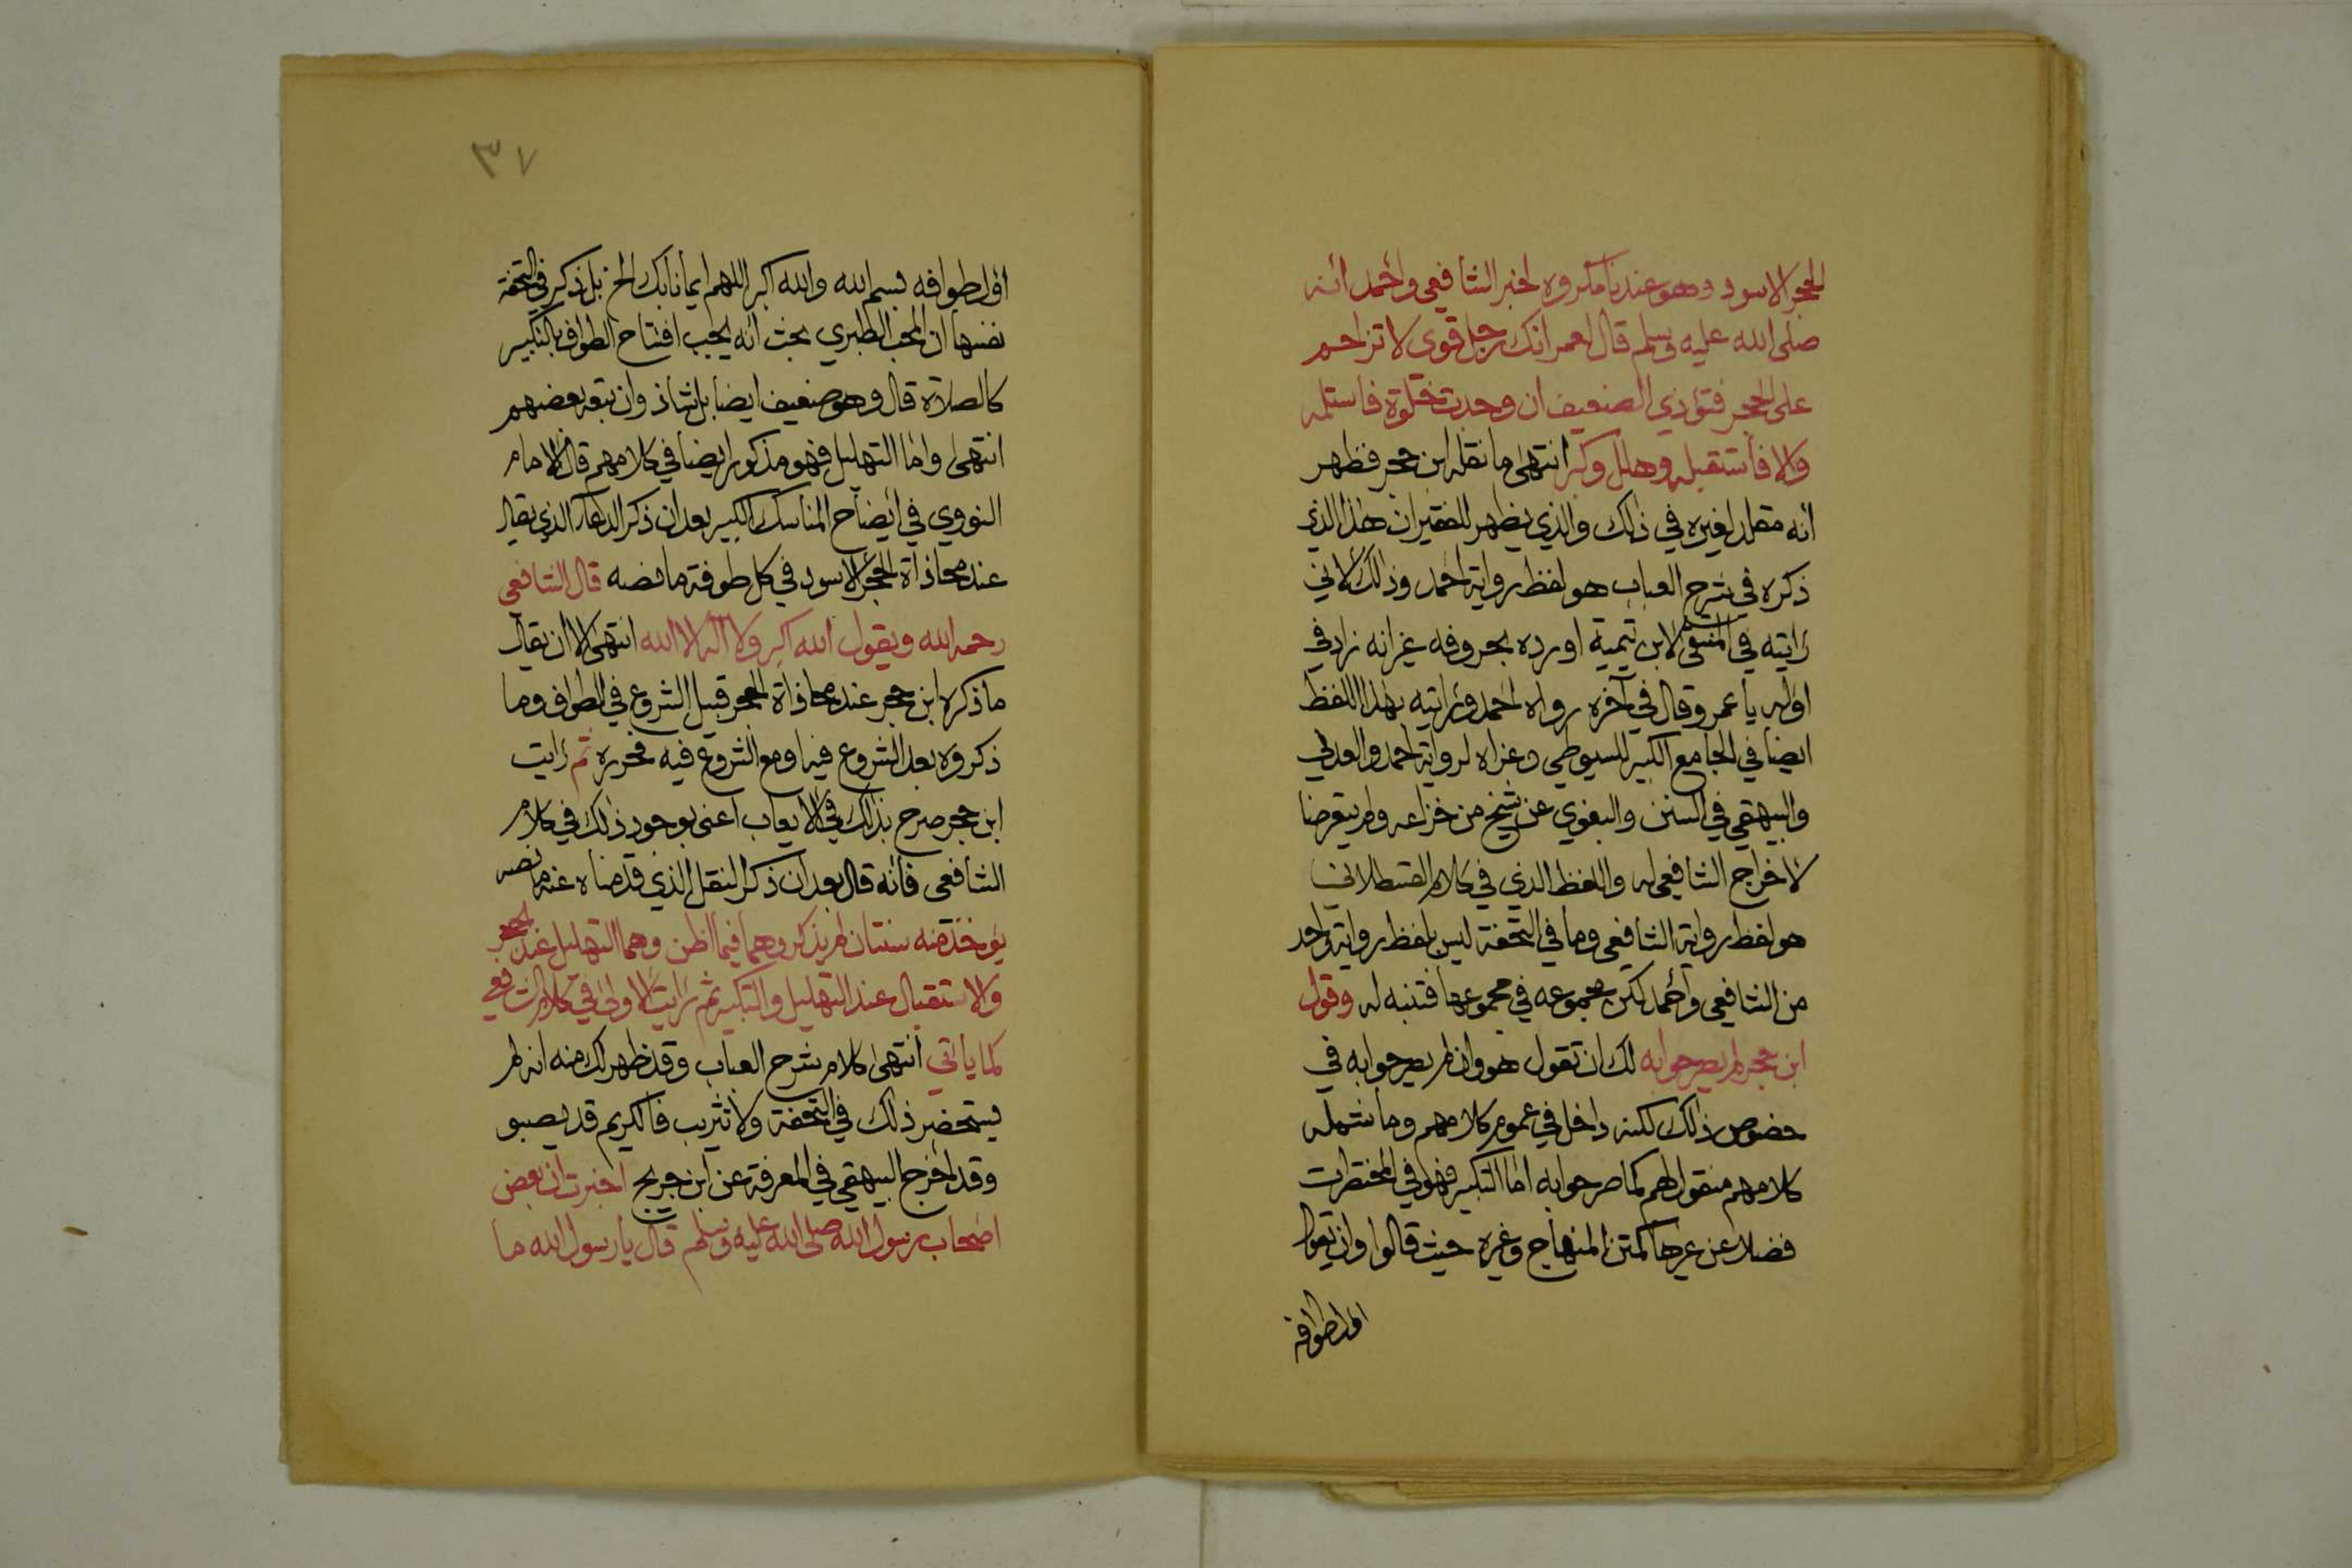 الحجر الاسود وهو عندنا مكروه لخبر الشافعي واحمد انه
صلى الله عليه وسلم قال لعمر انك رجل قوي لا تزاحم
على الحجر فتؤذي الضعيف ان وجدت خلوة فاستلمه
والا فاستقبله وهلل وكبر انتهى ما نقله ابن حجر فظهر
انه مقلد لغيره في ذلك والذي يظهر للفقير ان هذا الذي
ذكره في شرح العباب هو لفظ رواية احمد وذلك لاني
رايته في المنتقى لابن تيمية اورده بحروفه غير انه زاد في
اوله يا عمر وقال في آخره رواه احمد ورايته بهذا اللفظ
ايضا في الجامع الكبير للسيوطي وعزاه لرواية احمد والعدني
والبيهقي في السنن والبغوي عن شيخ من خزاعه ولم يتعرضا
لاخراج الشافعي له واللفظ الذي في كلام القسطلاني
هو لفظ رواية الشافعي وما في التحفة ليس بلفظ رواية واحد
من الشافعي واحمد لكن مجموعه في مجموعها فتنبه له وقول
ابن حجر لم يصرحوا به لك ان تقول هو وان لم يصرحوا به في
خصوص ذلك لكنه داخل في عموم كلامهم وما شمله
كلامهم منقول لهم كما صرحوا به اما التكبير فهو في المختصرات
فضلا عن غيرها كمتن المنهاج وغيره حيث قالوا وان يقول
اول طوافه
٣٧
اول طوافه بسم الله والله اكبر اللهم ايمانا بك الخ بل ذكر في التحفة
نفسها ان المحب الطبري بحث انه يجب افتتاح الطواف بالتكبير
كالصلاة قال وهو ضعيف ايضا بل شاذ وان تبعه بعضهم
انتهى واما التهليل فهو مذكور ايضا في كلامهم قال الامام
النووي في ايضاح المناسك الكبير بعد ان ذكر الدعاء الذي يقال
عند محاذاة الحجر الاسود في كل طوفة ما نصه قال الشافعي
رحمه الله ويقول الله اكبر ولا اله الا الله انتهى الا ان يقال
ما ذكره ابن حجر عند محاذاة الحجر قبيل الشروع في الطواف وما
ذكروه بعد الشروع فيه او مع الشروع فيه فحرره ثم رايت
ابن حجر صرح بذلك في الايعاب اعني بوجود ذلك في كلام
الشافعي فانه قال بعد ان ذكر النقل الذي قدمناه عنه ما نصه
يؤخذ منه سنتان لم يذكروهما فيما اظن وهما التهليل عند الحجر
والاستقبال عند التهليل والتكبير ثم رايت الاولى في كلام الشافعي
كما ياتي انتهى كلام شرح العباب وقد ظهر لك منه انه لم
يستحضر ذلك في التحفة ولا تثريب فالكريم قد يصبو
وقد اخرج البيهقي في المعرفة عن ابن جريج اخبرت ان بعض
اصحاب رسول الله صلى الله عليه وسلم قال يا رسول الله ما